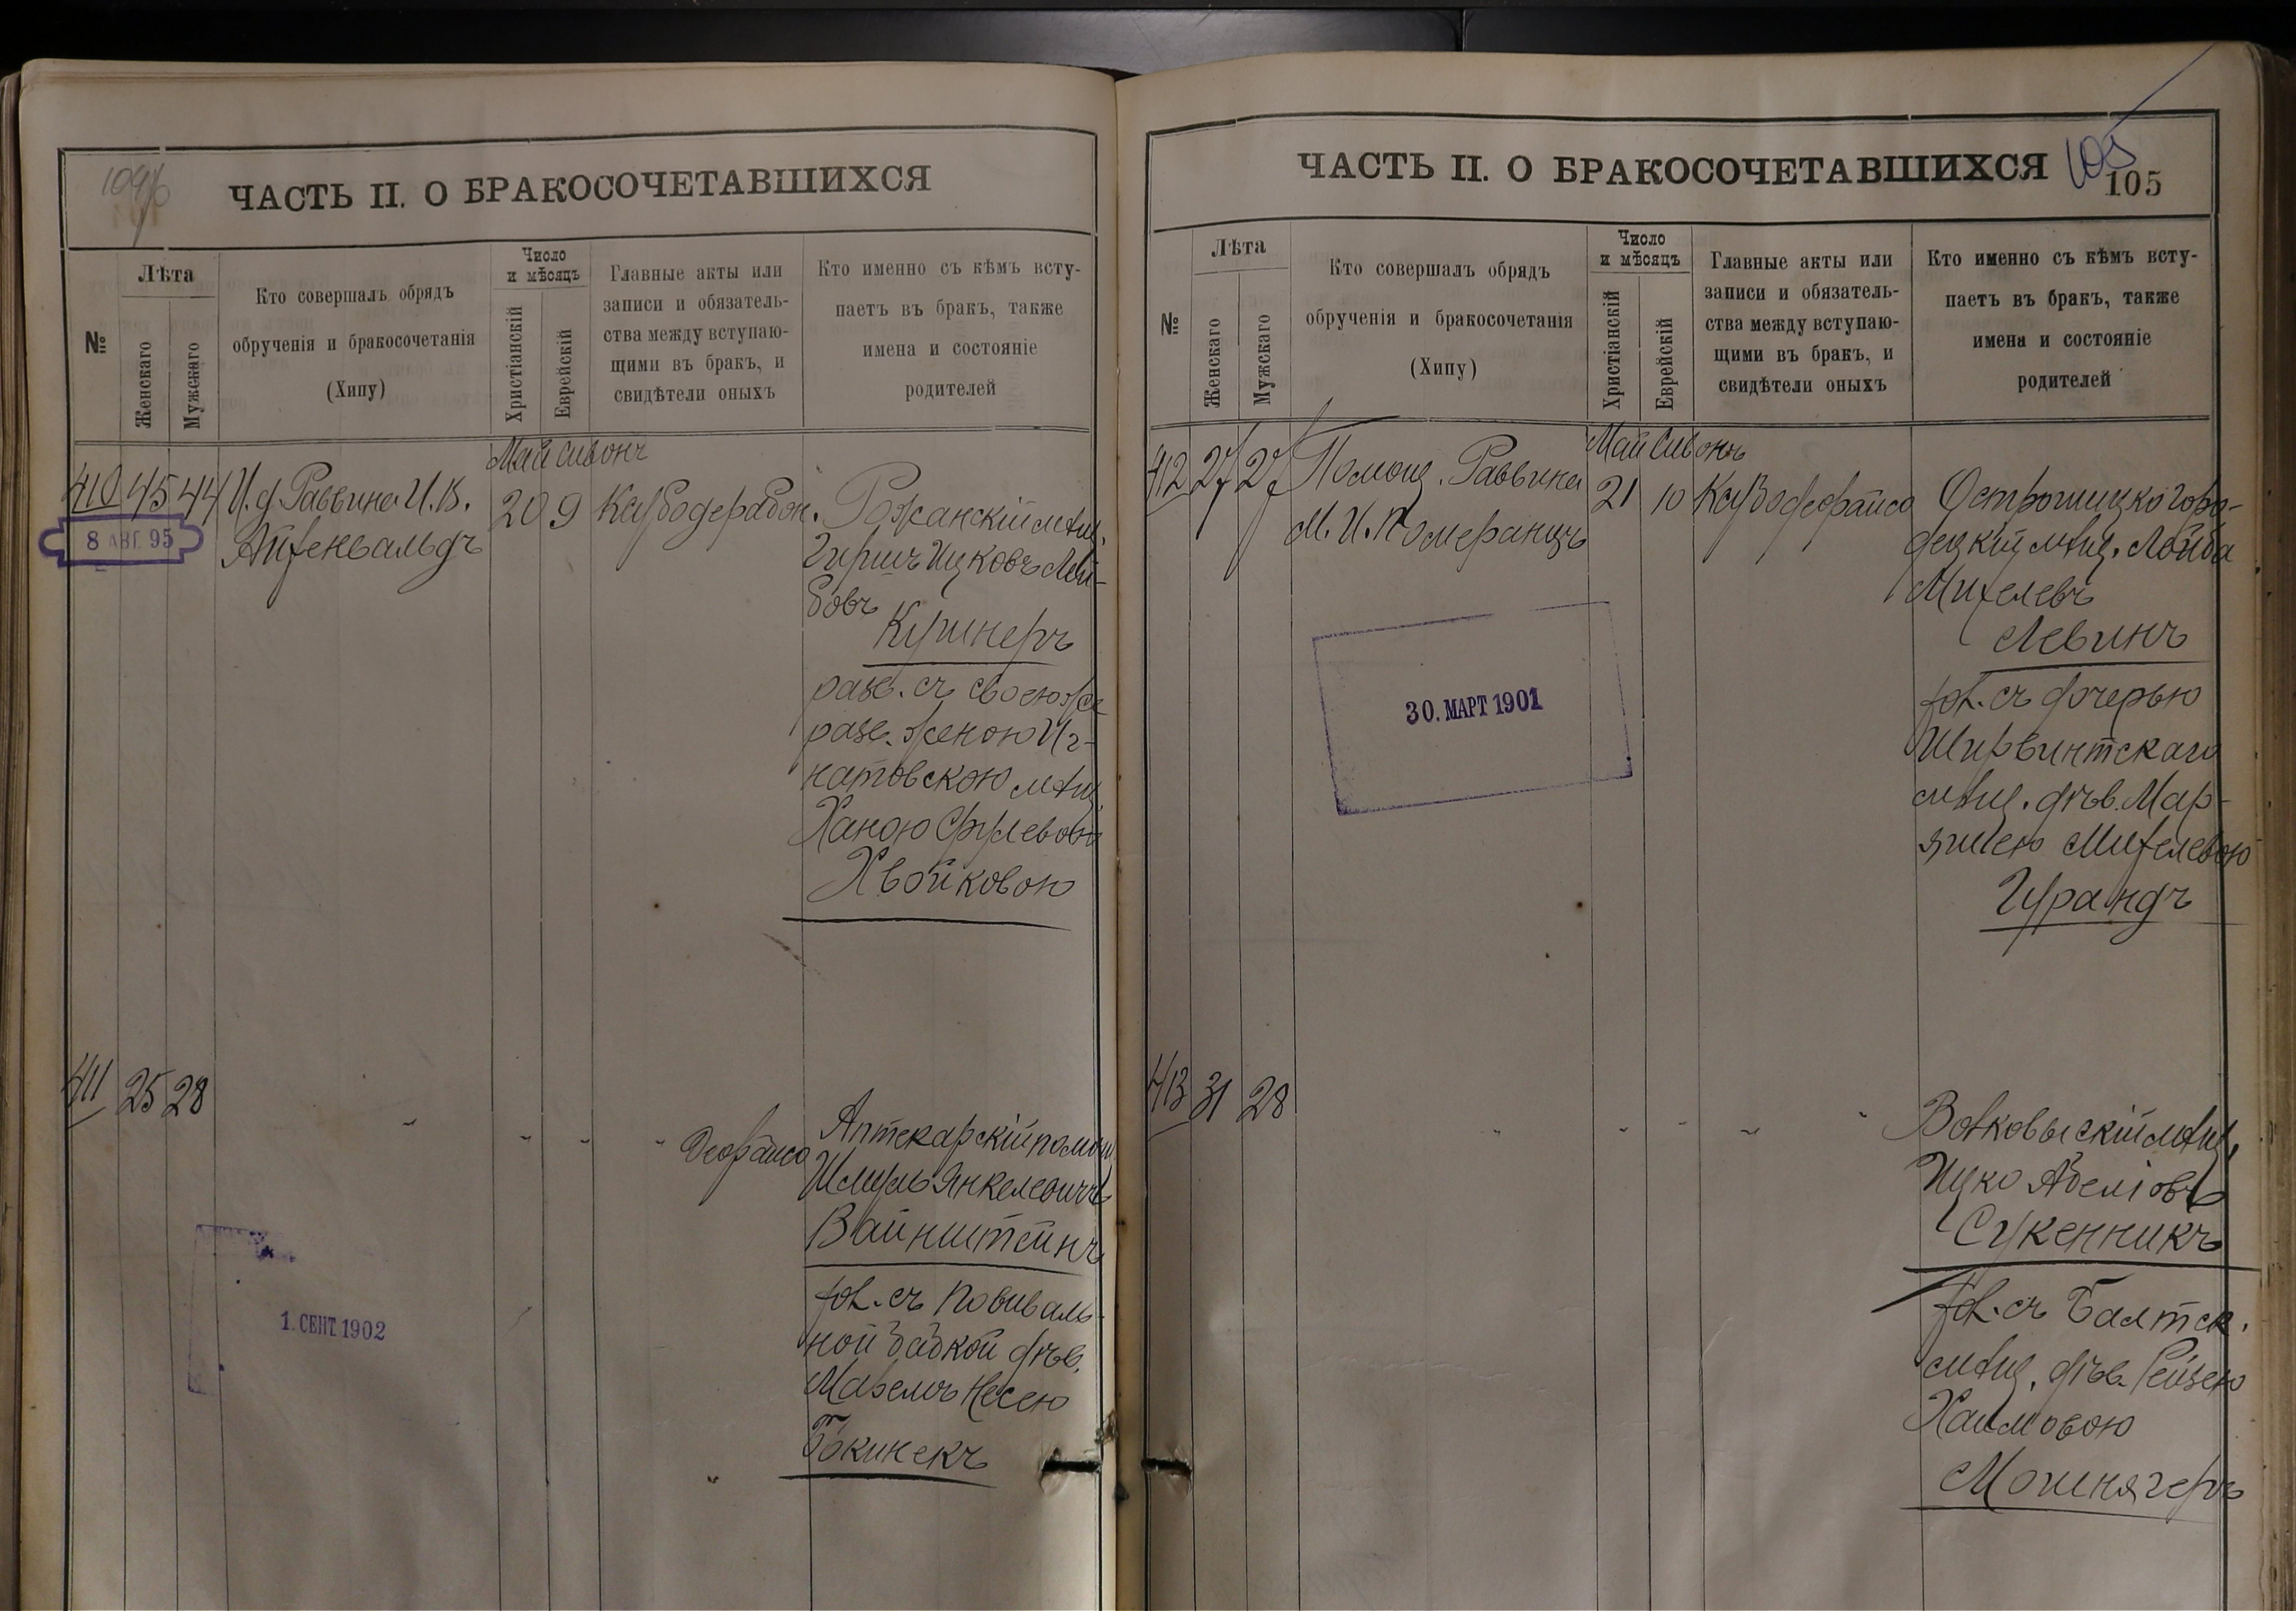 104/б
ЧАСТЬ II. О БРАКОСОЧЕТАВШИХСЯ
№
Лѣта
Женскаго
Мужскаго
Кто совершалъ обрядъ
обрученія и бракосочетанія
(Хипу)
Число
и мѣсяцъ
Христіанскій
Еврейскій
Главные акты или
записи и обязатель-
ства между вступаю-
щими въ бракъ, и
свидѣтели оныхъ
Кто именно съ кѣмъ всту-
паетъ въ бракъ, также
имена и состояніе
родителей
Май Сивонъ
410 45 44
И. д. Раввина И. В.
Айзенвальдъ
8 АВГ. 95
20 9
Рожанскій мѣщ.
Гиршъ Ицковъ Лей-
бовъ
Кушнеръ
разв. съ своею же
разв. женою Иг-
натовскою мѣщ.
Ханою Срулевою
Хвойковою
411 25 28
Аптекарскій помощ.
Шмуль Янкелевичъ
Вайнштейнъ
хол. съ повиваль-
ной бабкой дѣв.
Несею
1. СЕНТ. 1902
ЧАСТЬ II. О БРАКОСОЧЕТАВШИХСЯ
105
105
№
Лѣта
Женскаго
Мужскаго
Кто совершалъ обрядъ
обрученія и бракосочетанія
(Хипу)
Число
и мѣсяцъ
Христіанскій
Еврейскій
Главные акты или
записи и обязатель-
ства между вступаю-
щими въ бракъ, и
свидѣтели оныхъ
Кто именно съ кѣмъ всту-
паетъ въ бракъ, также
имена и состояніе
родителей
Май Сивонъ
412 27 27
Помощ. Раввина
М. И. Померанцъ
21 10
Острошицко-горо-
децкій мѣщ. Лейба
Михелевъ
Левинъ
хол. съ дочерью
Ширвинтскаго
мѣщ. дѣв. Мар-
яшею Михелевою
Гурандъ
30. МАРТ 1901
413 31 28
Волковыскій мѣщ.
Ицко Абелiовъ
Сукенникъ
хол. съ Балтск.
мѣщ. дѣв. Рейзею
Хаимовою
Мошнягеръ